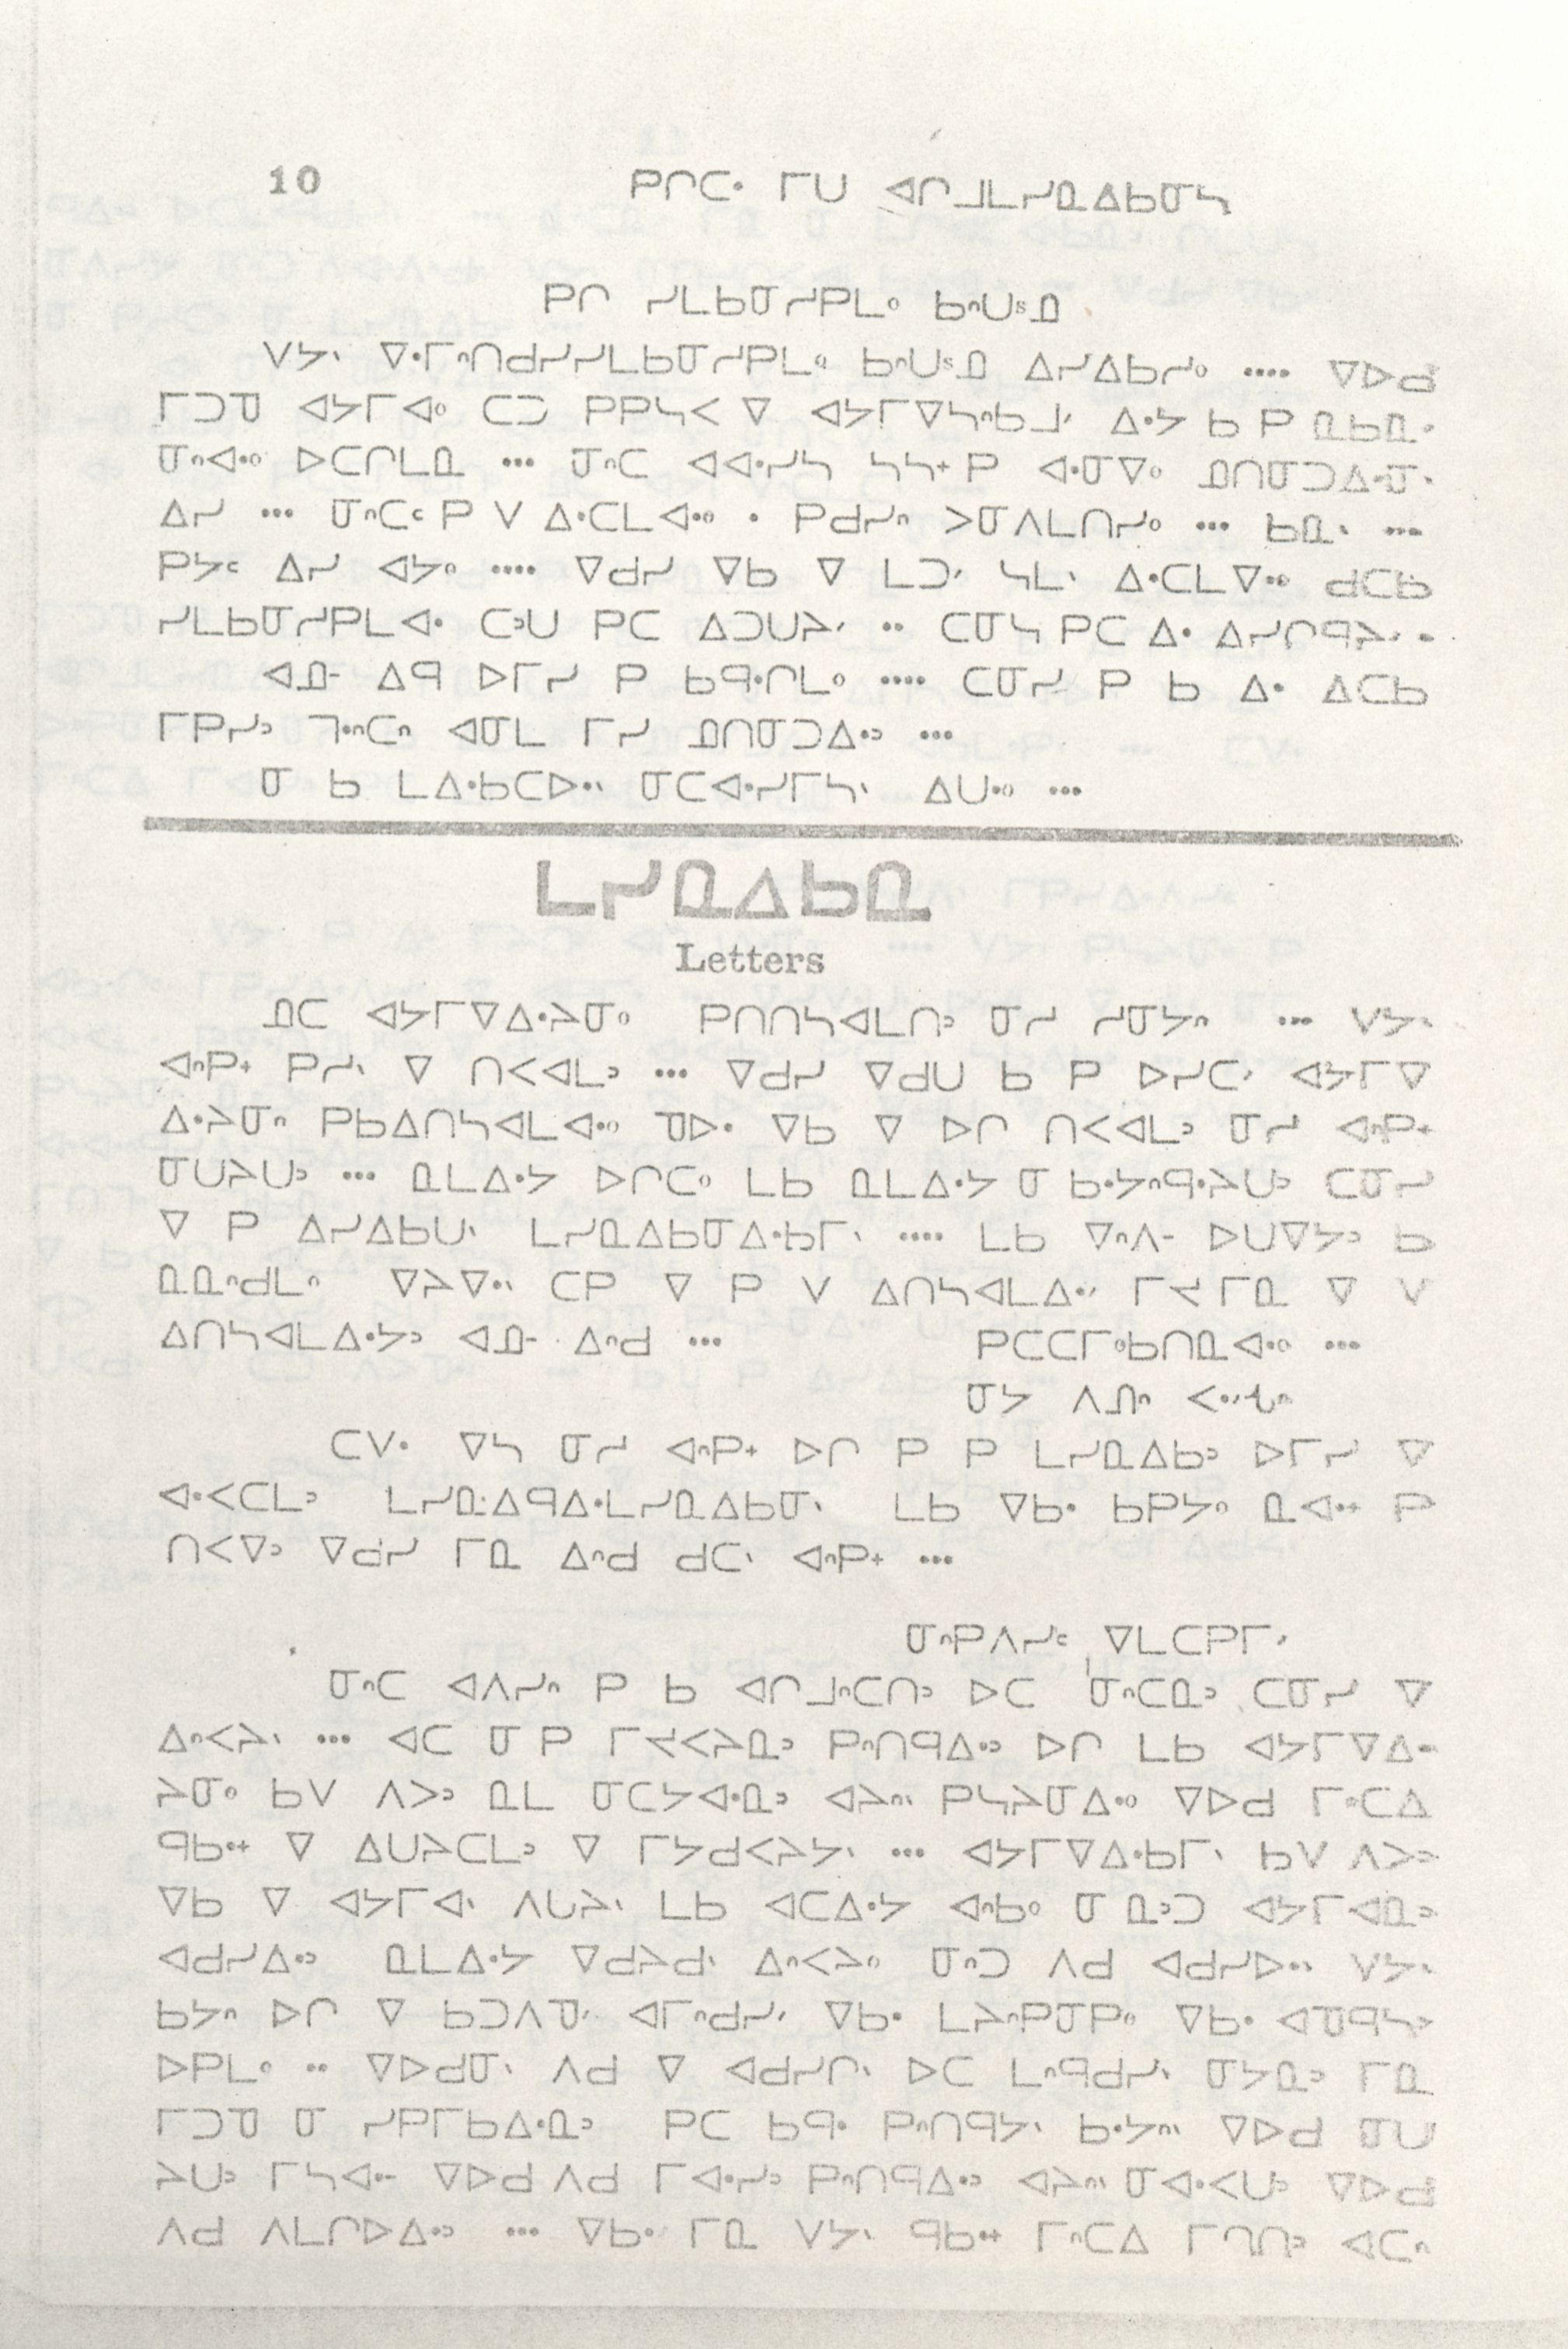 10 ᑭᒋᑕᐧ ᒥᑌ ᐊᒋᒧᒪᓯᓇᐃᑲᓂᓴ
ᑭᒋ ᓯᒪᑲᓂᓯᑭᒪᐤ ᑲᐢᑌˢᓄ
ᐯᔭᐠ ᐁᐧᒥᐢᑎᑯᓯᓯᒪᑲᓂᓯᑭᒪᐤ ᑲᐢᑌˢᓄ ᐃᓯᐃᑲᓱᐤ •••• ᐁᐅᑯ
ᒥᑐᓀ ᐊᔭᒥᐊᐤ ᑕᑐ ᑭᑭᓴᐸ ᐁ ᐊᔭᒥᐁᓴᐢᑲᒧᐟ ᐃᐧᔭ ᑲ ᑭ ᓇᑲᓇᐧ
ᓂᐢᐊᐧᐤ ᐅᑕᒋᒪᓇ ••• ᓂᐢᑕ ᐊᐊᐧᓯᓴ ᓴᓴᕀ ᑭ ᐊᐧᓂᐁᐤ ᓄᑎᓂᑐᐃᐧᓂᐠ
ᐃᓯ ••• ᓂᐢᑕᑦ ᑭ ᐯ ᐃᐧᑕᒪᐊᐧᐤ • ᑭᑯᓯᐢ ᐳᓂᐱᒪᑎᓯᐤ ••• ᑲᓇᐠ •••
ᑭᔭᑦ ᐃᓯ ᐊᔭᐤ •••• ᐁᑯᓯ ᐁᑲ ᐁ ᒪᑐᐟ ᓴᒪᐠ ᐃᐧᑕᒪᐁᐧᐤ ᑯᑕᑲ
ᓯᒪᑲᓂᓯᑭᒪᐊᐧ ᑕᐣᑌ ᑭᑕ ᐃᑐᑌᔨᐟ •• ᑕᓂᓴ ᑭᑕ ᐃᐧ ᐃᓯᒋᑫᔨᐟ •
ᐊᓄᐨ ᐃᑫ ᐅᒥᓯ ᑭ ᑲᑫᐧᒋᒪᐤ •••• ᑕᓂᓯ ᑭ ᑲ ᐃᐧ ᐃᑕᑲ
ᒥᑭᓯᐣ ᒣᐧᐢᑕᐢ ᐊᓂᒪ ᒥᓯ ᓄᑎᓂᑐᐃᐧᐣ •••
ᓂ ᑲ ᒪᐃᐧᑲᑕᐅᐧᐠ ᓂᑕᐊᐧᓯᒥᓴᐠ ᐃᑌᐧᐤ •••
ᒪᓯᓇᐃᑲᓇ
Letters
ᓄᑕ ᐊᔭᒥᐁᐃᐧᔨᓂᐤ ᑭᑎᑎᓴᐊᒪᑎᐣ ᓂᓯ ᓱᓂᔭᐢ ••• ᐯᔭᐠ
ᐊᐢᑭᕀ ᑭᓯᐠ ᐁ ᑎᐸᐊᒪᐣ ••• ᐁᑯᓯ ᐁᑯᑌ ᑲ ᑭ ᐅᓯᑕᐟ ᐊᔭᒥᐁ
ᐃᐧᔨᓂᐢ ᑭᑲᐃᑎᓴᐊᒪᐊᐧᐤ ᑫᐅᐧ ᐁᑲ ᐁ ᐅᒋ ᑎᐸᐊᒪᐣ ᓂᓱ ᐊᐢᑭᕀ
ᓂᑌᔨᑌᐣ ••• ᓇᒪᐃᐧᔭ ᐅᒋᑕᐤ ᒪᑲ ᓇᒪᐃᐧᔭ ᓂ ᑲᐧᔭᐢᑫᐧᔨᑌᐣ ᑕᓂᓯ
ᐁ ᑭ ᐃᓯᐃᑲᑌᐠ ᒪᓯᓇᐃᑲᓂᐃᐧᑲᒥᐠ •••• ᒪᑲ ᐁᐢᐱᐨ ᐅᑌᐁᔭᐣ ᑲ
ᓇᓇᐢᑯᒪᐢ ᐁᔨᐁᐧᐠ ᑕᑭ ᐁ ᑭ ᐯ ᐃᑎᓴᐊᒪᐃᐧᐟ ᒥᔪᒥᓇ ᐁ ᐯ
ᐃᑎᓴᐊᒪᐃᐧᔭᐣ ᐊᓄᐨ ᐃᐢᑯ ••• ᑭᑕᑕᒥᐤᑲᑎᓇᐊᐧᐤ •••
ᓂᔭ ᐱᓄᐢ
ᑕᐯᐧ ᐁᓴ ᓂᓱ ᐊᐢᑭᕀ ᐅᒋ ᑭ ᑭ ᒪᓯᓇᐃᑲᐣ ᐅᒥᓯ ᐁ
ᐊᐧᐸᑕᒪᐣ ᒪᓯᓇᐃᑫᐃᐧᒪᓯᓇᐃᑲᓂᐠ ᒪᑲ ᐁᑲᐧ ᑲᑭᔭᐤ ᓇᐊᐧᕀ ᑭ
ᑎᐸᐁᐣ ᐁᑯᓯ ᒥᓇ ᐃᐢᑯ ᑯᑕᐠ ᐊᐢᑭᕀ •••
ᓂᐢᑭᐱᓯᑦ ᐁᒪᑕᑭᒥᐟ
ᓂᐢᑕ ᐊᐱᓯᐢ ᑭ ᑲ ᐊᒋᒧᐢᑕᑎᐣ ᐅᑕ ᓂᐢᑕᓇᐣ ᑕᓂᓯ ᐁ
ᐃᐢᐸᔨᐠ ••• ᐊᑕ ᓂ ᑭ ᒥᔪᐸᔨᓇᐣ ᑭᐢᑎᑫᐃᐧᐣ ᐅᒋ ᒪᑲ ᐊᔭᒥᐁᐃᐧ
ᔨᓂᐤ ᑲᐯ ᐱᐳᐣ ᓇᒪ ᓂᑕᔭᐊᐧᓇᐣ ᐊᔨᐢ ᑭᓴᔨᓂᐃᐧᐤ ᐁᐅᑯ ᒥᐢᑕᐃ
ᑫᑲᐧᕀ ᐁ ᐃᑌᔨᑕᒪᐣ ᐁ ᒥᔭᑯᐸᔨᔭᐠ ••• ᐊᔭᒥᐁᐃᐧᑲᒥᐠ ᑲᐯ ᐱᐳᐣ
ᐁᑲ ᐁ ᐊᔭᒥᐊᐠ ᐱᓴᔨᐠ ᒪᑲ ᐊᑕᐃᐧᔭ ᐊᐢᑲᐤ ᓂ ᓇᐣᑐ ᐊᔭᒥᐊᓇᐣ
ᐊᑯᓯᐃᐧᐣ ᓇᒪᐃᐧᔭ ᐁᑯᔨᑯᐠ ᐃᐢᐸᔨᐤ ᓂᐢᑐ ᐱᑯ ᐊᑯᓯᐅᐧᐠ ᐯᔭᐠ
ᑲᔭᐢ ᐅᒋ ᐁ ᑲᑐᐱᓀᐟ ᐊᒥᐢᑯᓱᐟ ᐁᑲᐧ ᒪᔨᐢᑭᓂᑭᐤ ᐁᑲᐧ ᐊᓀᑫᓴᐣ
ᐅᑭᒪᐤ •• ᐁᐅᑯᓂᐠ ᐱᑯ ᐁ ᐊᑯᓯᒋᐠ ᐅᑕ ᒪᐢᑫᑯᓯᐠ ᓂᔭᓇᐣ ᒥᓇ
ᒥᑐᓀ ᓂ ᓯᑭᒥᑲᐃᐧᓇᐣ ᑭᑕ ᑲᑫᐧ ᑭᐢᑎᑫᔭᐠ ᑲᐧᔭᐢᐠ ᐁᐅᑯ ᓂᑌ
ᔨᑌᐣ ᒥᓴᐊᐧᐨ ᐁᐅᑯ ᐱᑯ ᒥᐊᐧᓯᐣ ᑭᐢᑎᑫᐃᐧᐣ ᐊᔨᐢ ᓂᐊᐧᐸᑌᐣ ᐁᐅᑯ
ᐱᑯ ᐱᒪᒋᐅᐃᐧᐣ ••• ᐁᑲᐧ ᒥᓇ ᐯᔭᐠ ᑫᑲᐧᕀ ᒥᐢᑕᐃ ᒥᒋᑎᐣ ᐊᑕᐢ